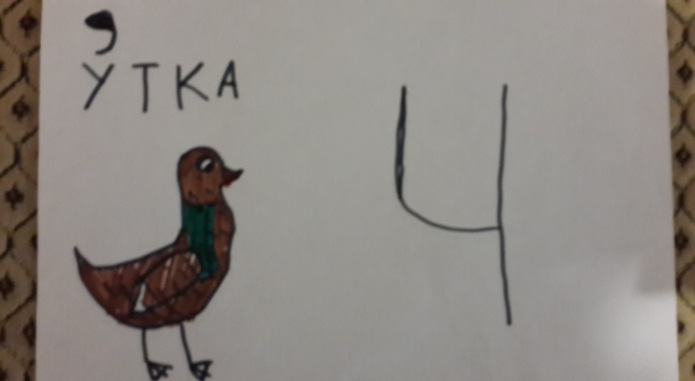 ,
УТКА
Ч